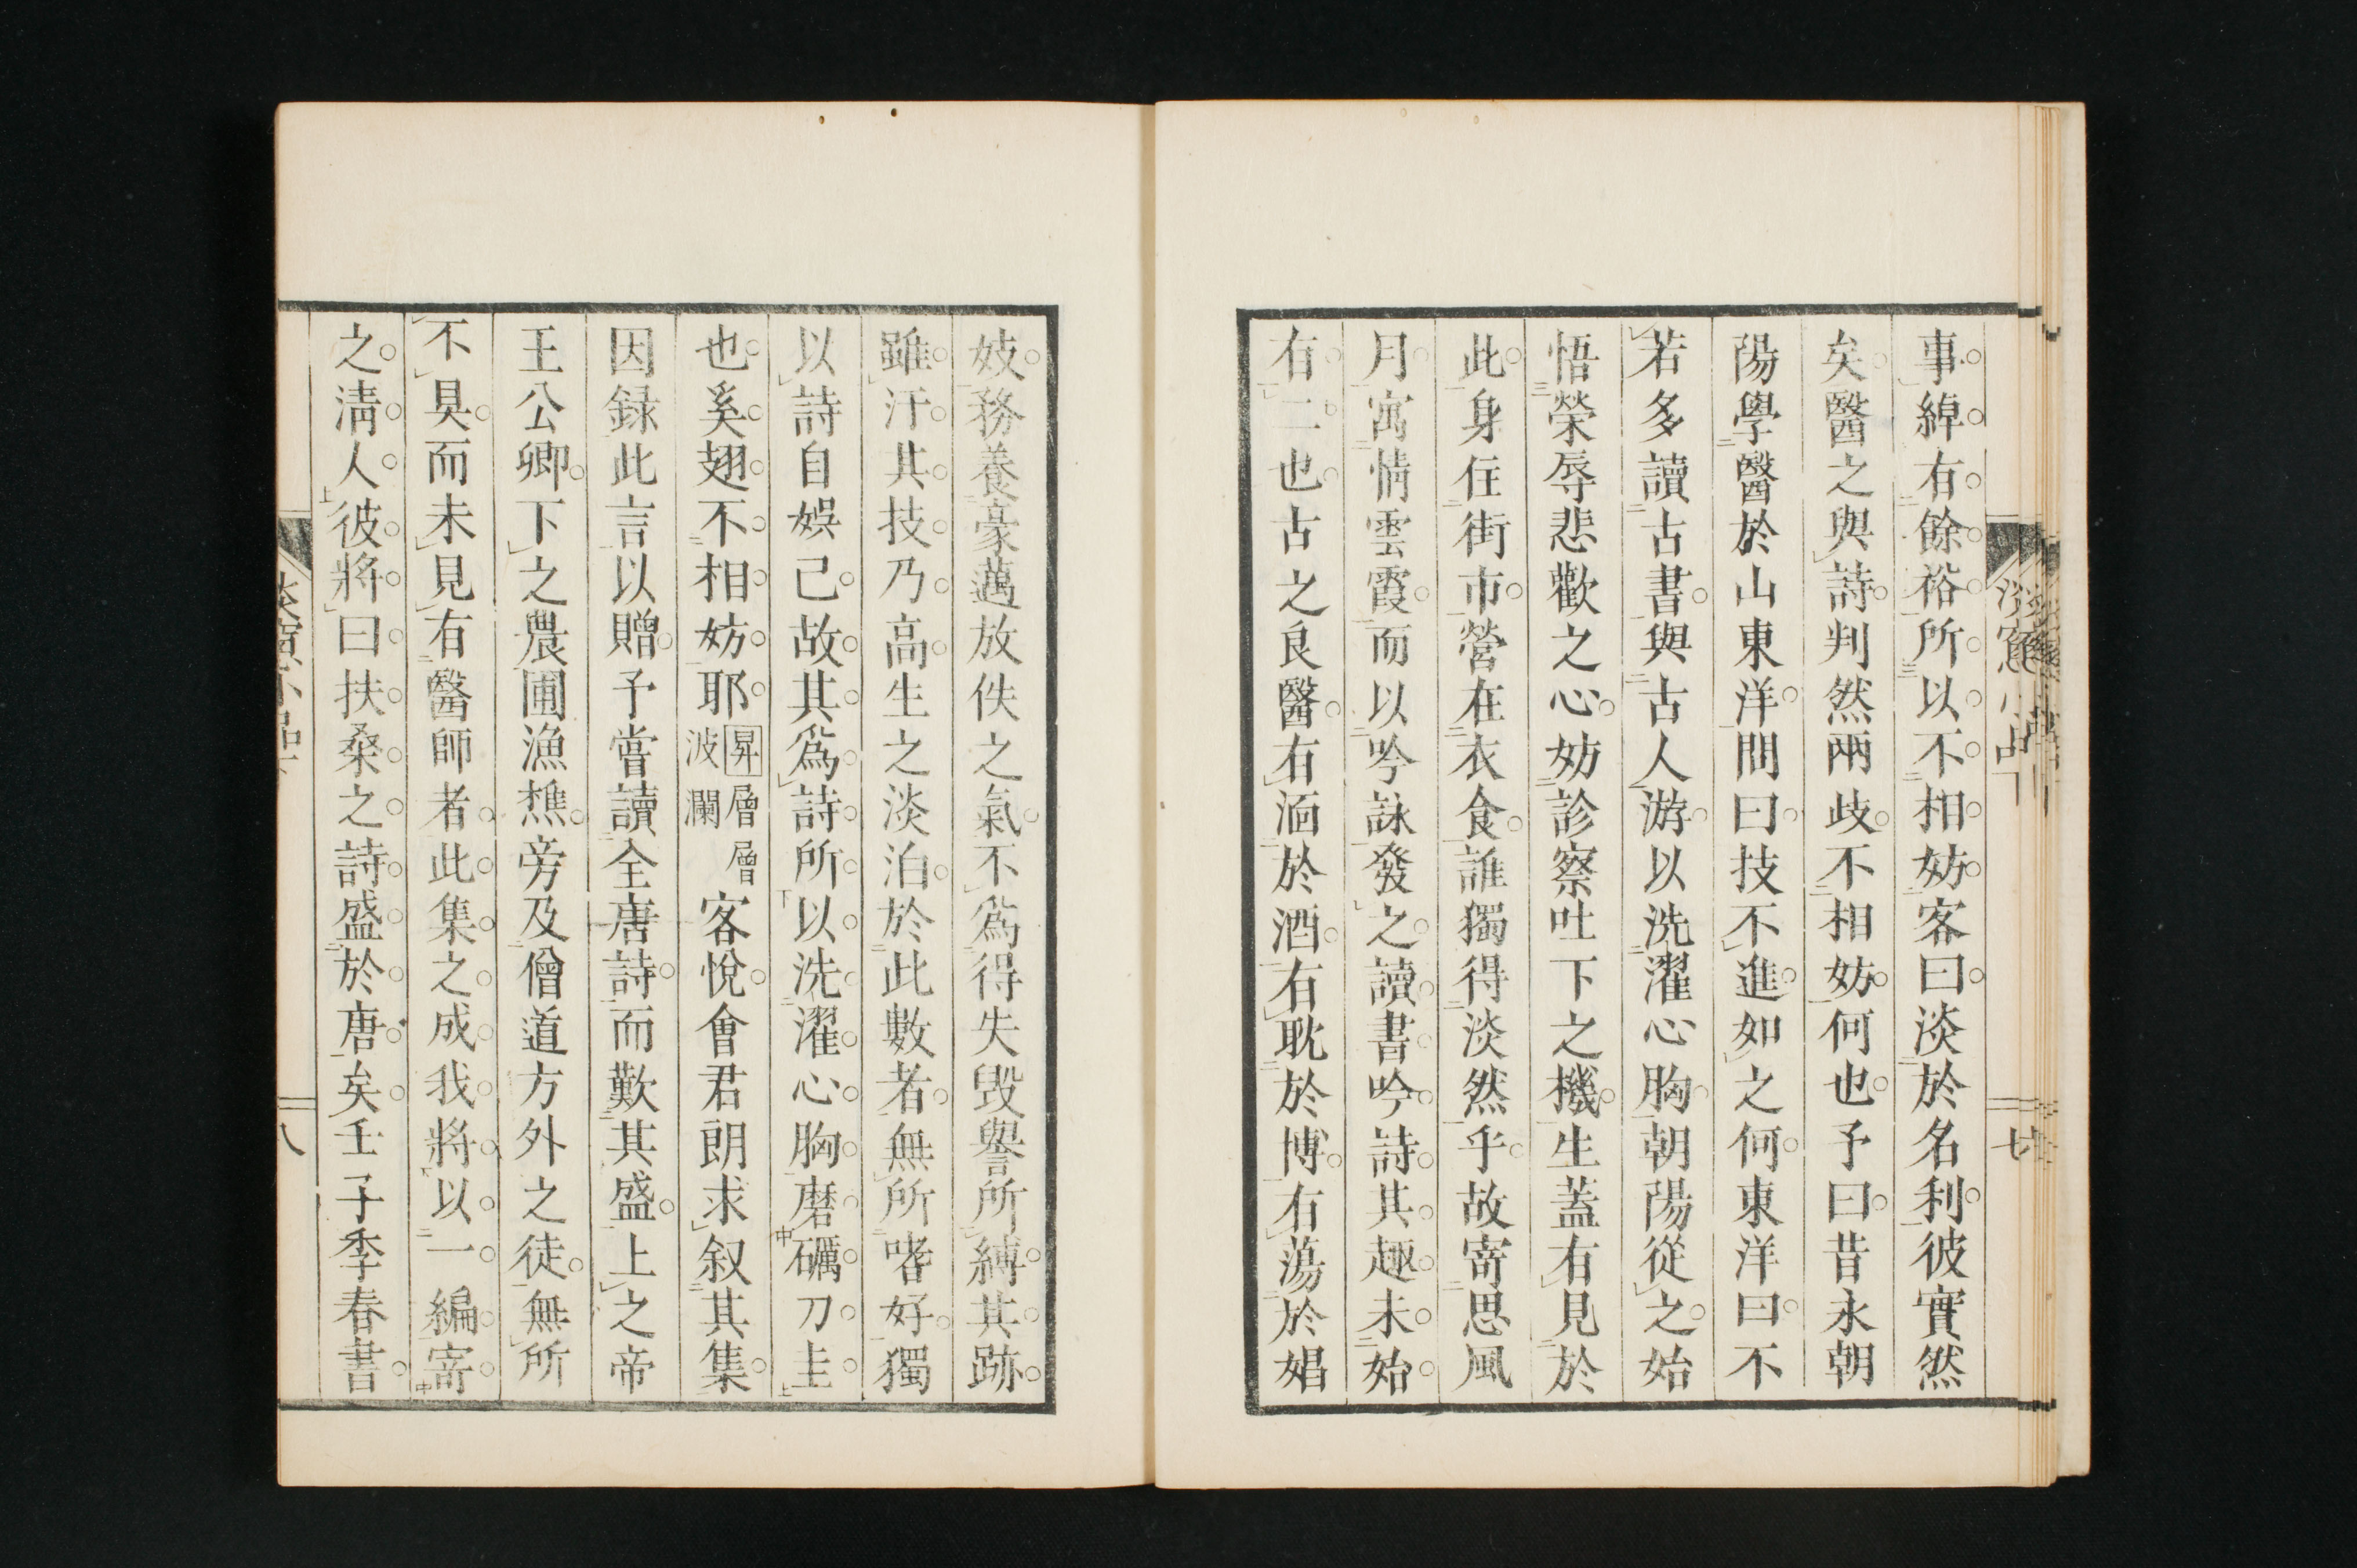 事綽有餘裕所以不相妨客曰淡於名利彼實然
矣醫之與詩判然兩歧不相妨何也予曰昔永朝
陽學醫於山東洋問曰技不進如之何東洋曰不
若多讀古書與古人游以洗濯心胸朝陽從之始
悟榮辱悲歡之心妨診察吐下之機生蓋有見於
此身住街市營在衣食誰獨得淡然乎故寄思風
月寓情雲霞而以吟詠發之讀書吟詩其趣未始
有二也古之良醫有湎於酒有耽於博有蕩於娼
七
妓務養豪邁放佚之氣不爲得失毀譽所縛其跡
雖汙其技乃高生之淡泊於此數者無所嗜好獨
以詩自娛己故其爲詩所以洗濯心胸磨礪刀圭
也奚翅不相妨耶昇層層波瀾客悅會君朗求叙其集
因録此言以贈予嘗讀全唐詩而歎其盛上之帝
王公卿下之農圃漁樵旁及僧道方外之徒無所
不具而未見有醫師者此集之成我將以一編寄
之淸人彼將曰扶桑之詩盛於唐矣壬子季春書
八